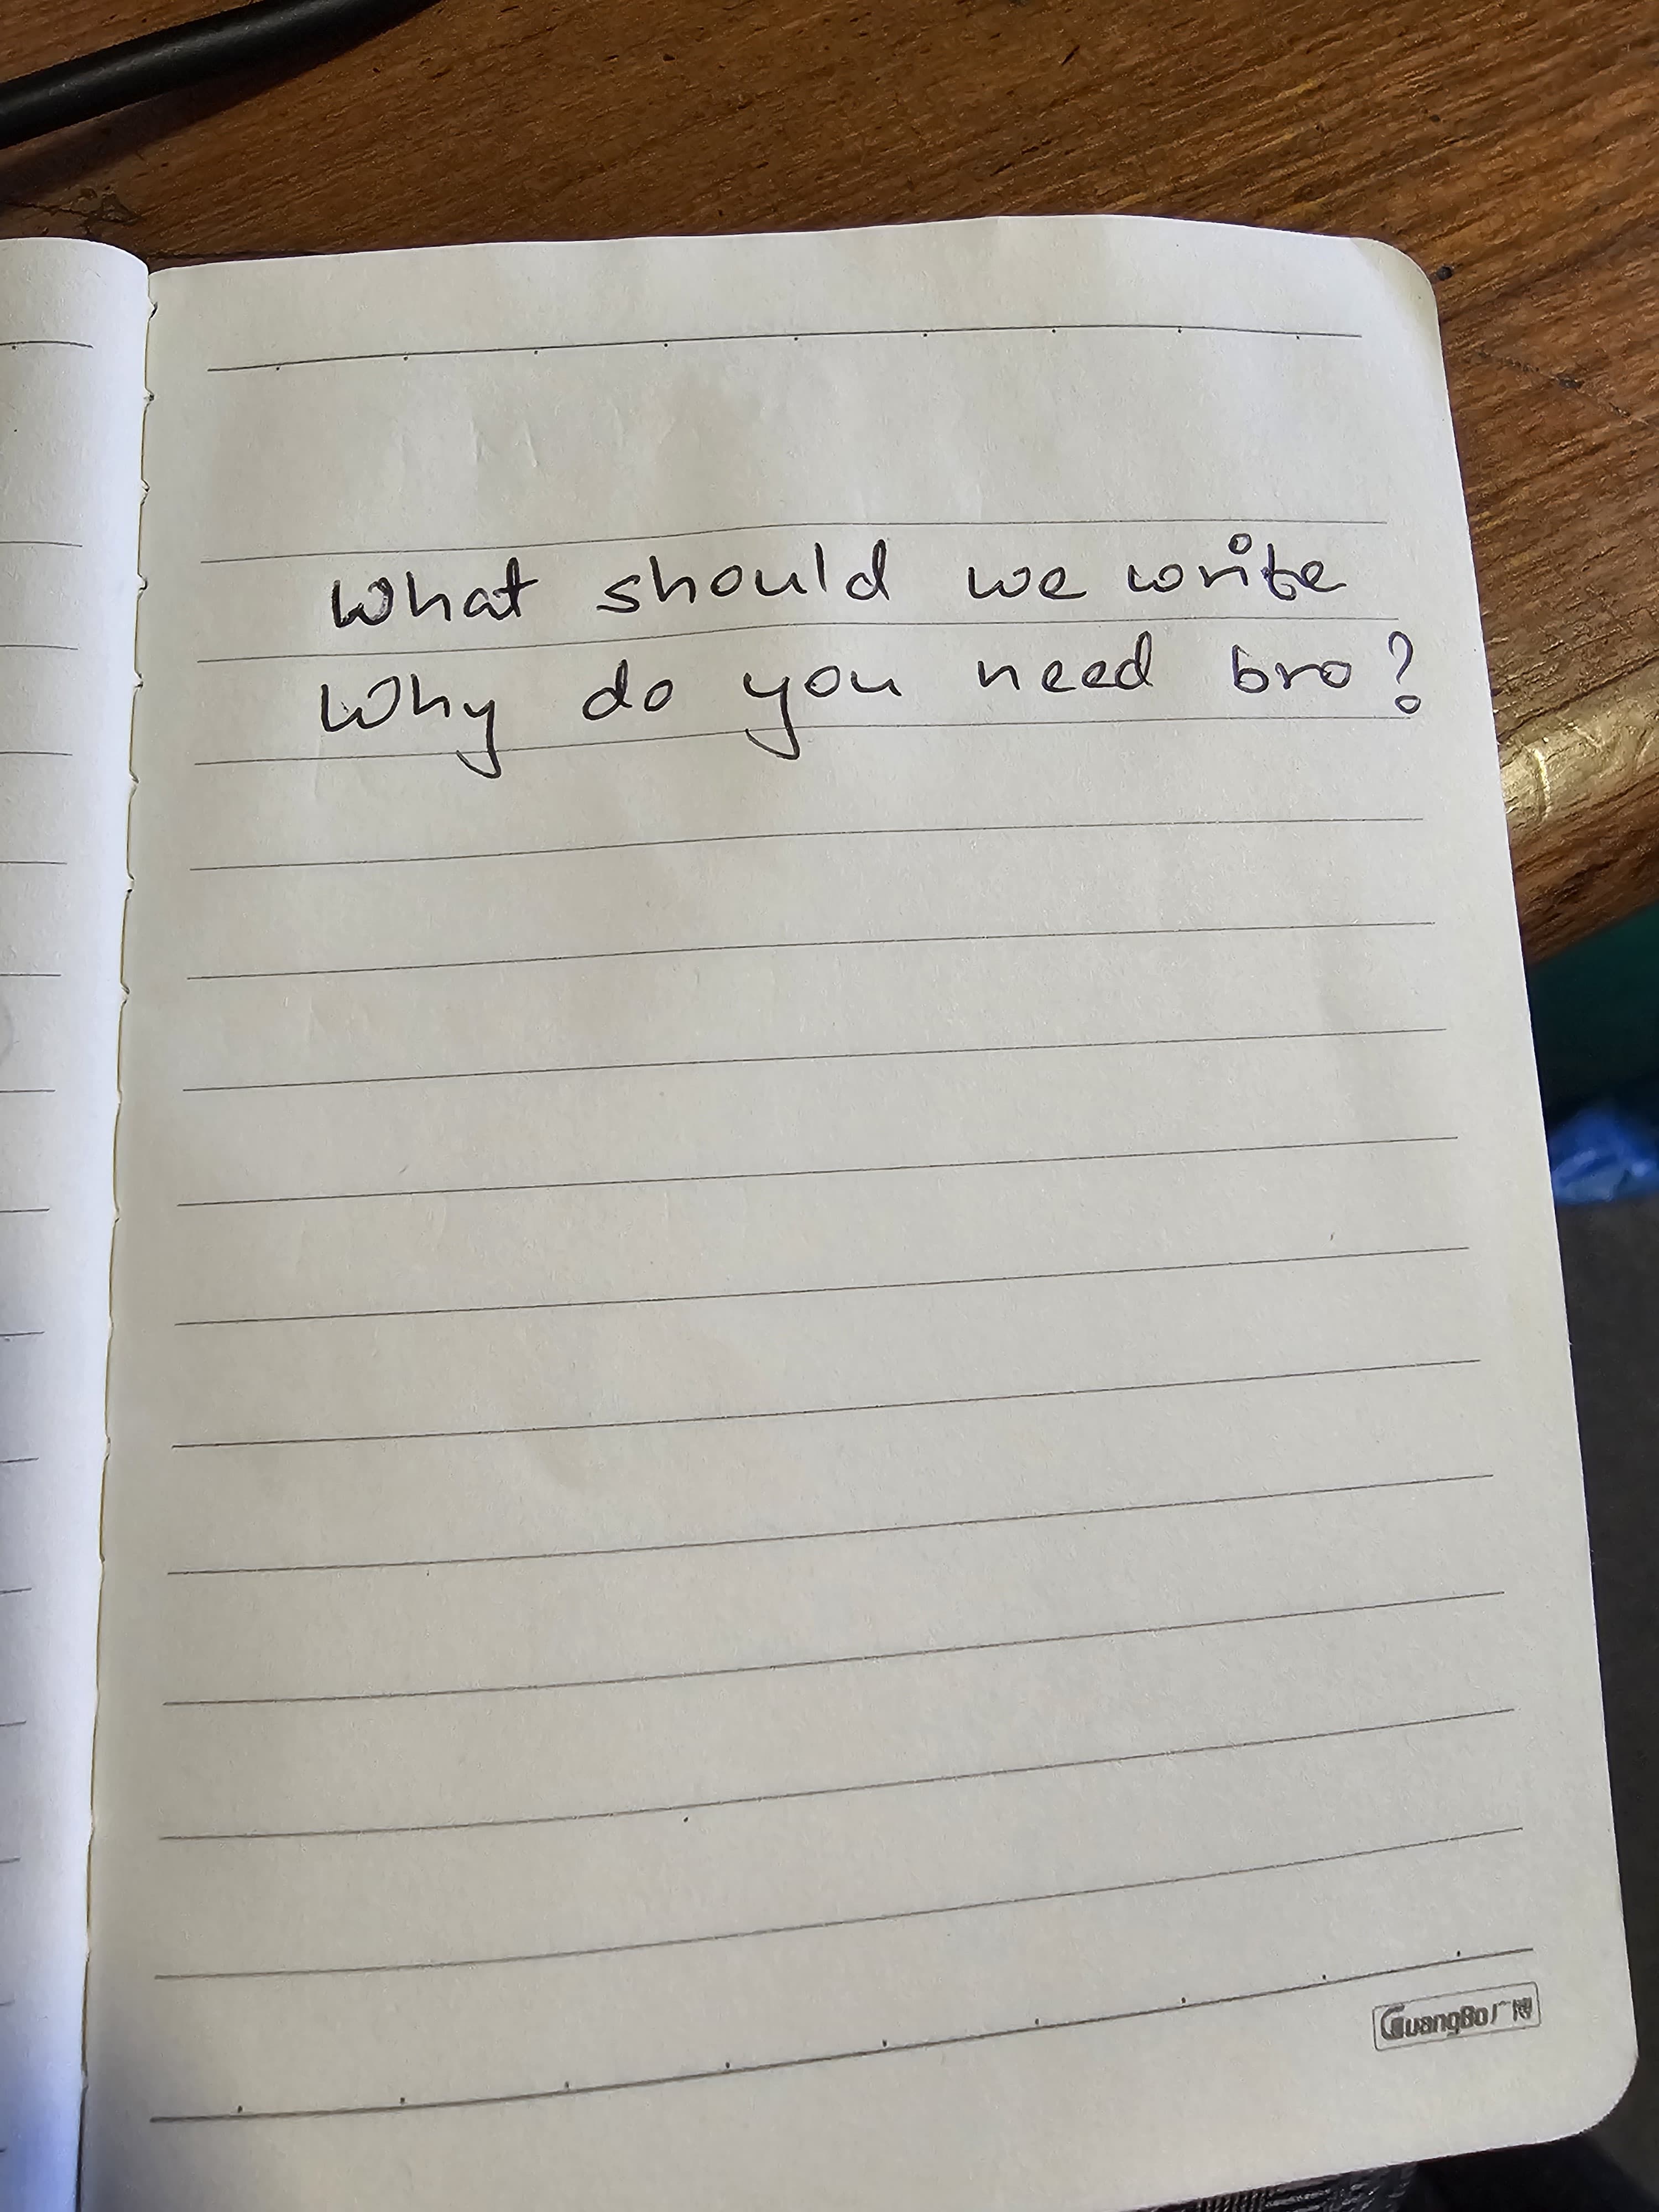 What should we write
Why do you need bro?
GuangBo广博